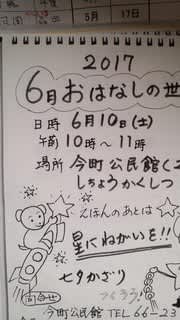 5月 17日
2017
6月おはなしの世
日時 6月10日(土)
午前 10時〜11時
場所 今町公民館(2
しちょうかくしつ
えほんのあとは
星にねがいを!!
七夕かざり
つくろう!
問合せ
今町公民館 TEL 66-23